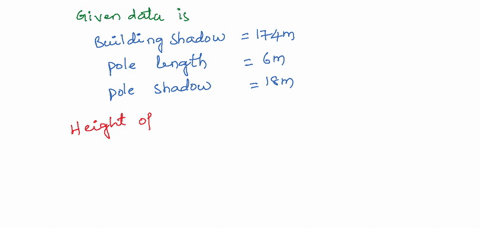 Given data is
Building Shadow = 174m
pole length = 6m
pole shadow = 18m
Height of